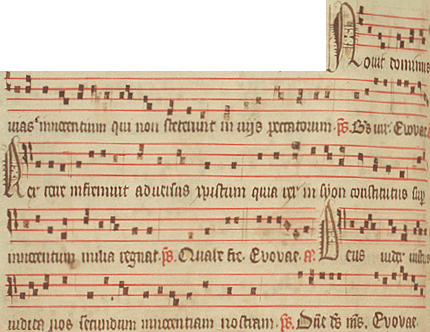 Novit dominus
vias innocentium qui non steterunt in viis peccatorum. ps. Bts vir. Evovae
Rex terre infremuit adversus xpistum quia rex in syon constitutus sup
innocentium milia regnat. ps. Quare fre. Evovae. a. Deus iudex iustus
iudica nos secundum innocentiam nostram. ps. Dne ds ms. Evovae.